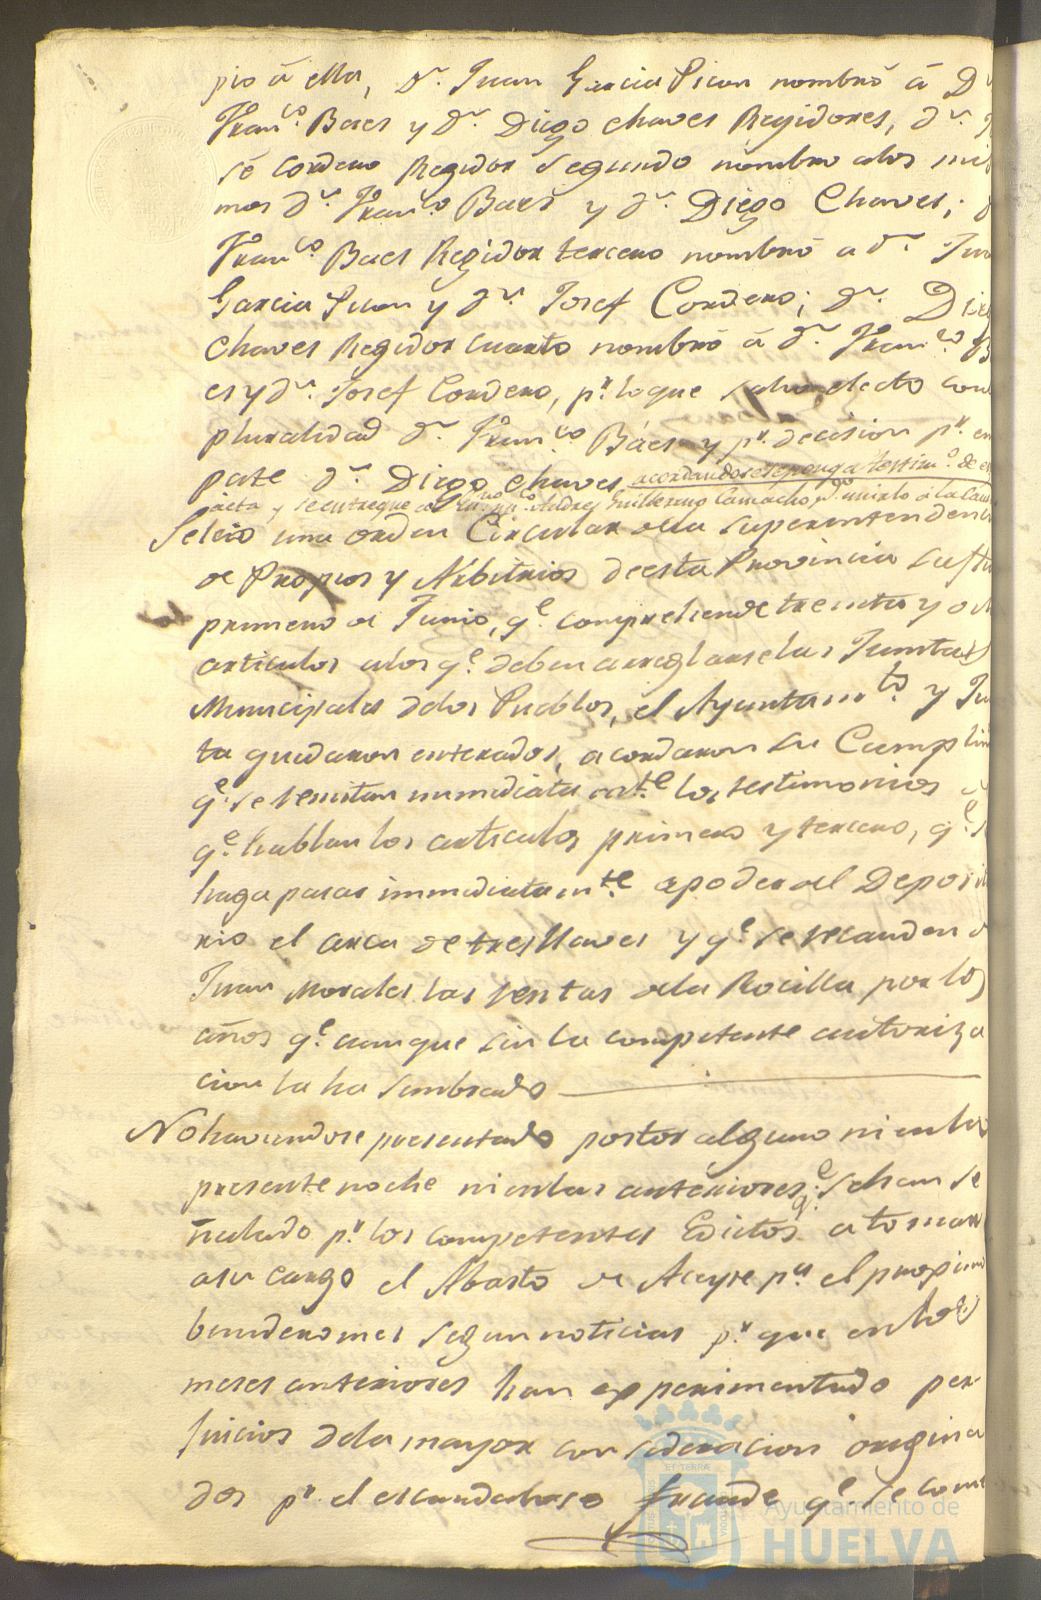 pio á ella, Dn. Juan Garcia Picon nombró á Dn
Franco. Baes y Dn. Diego Chaves Regidores, Dn. J
sé Cordero Regidor Segundo nombro alos mis
mos Dn. Franco. Baes y Dn. Diego Chaves; D
Franco. Baes Regidor tercero nombró a Dn. Jua
Garcia Picon y Dn. Josef Cordero; Dn. Die
Chaves Regidor Cuarto nombró á Dn. Franco. B
es y Dn. Josef Cordero, pr. loque salio electo con
pluralidad Dn. Franco. Báes y pr. decision pr. em
pate Dn. Diego Chaves acordandose seponga testimo. de es
acta, y seentregue al Andres Guillermo Camacho, pa. unirlo á la Cau
Seleió una orden Circular dela Superintendenci
de Propios y Arbitrios deesta Provincia suftra
primero de Junio, qe. comprehende treinta y och
articulos alos qe. deben arreglarselas Juntas
Municipales delos Pueblos, el Ayuntamto. y Jun
ta quedaron enterados, acordaron su Cumplim
qe. se remitan inmediatamte. los testimonios d
qe. hablan los articulos primero y tercero, qe. s
haga pasar immediatamte. apoder del Deposit
rio el arca de tres llaves y qe. se recauden d
Juan Morales las rentas dela Rocilla por los
años qe. aunque sin la competente autoriza
cion la ha sembrado
Nohaviendose presentado postor alguno ni enla
presente noche ni enlas anteriores qe. sehan se
ñalado pr. los competentes Edictos a tomar
asu cargo el Abasto de Aceyte pa. el proximo
benidero mes segun noticias pr. que enlos
meses anteriores han experimentado per
juicios dela mayor consideracion origina
dos pr. el escandaloso fraude qe. se come
Ayuntamiento de
HUELVA